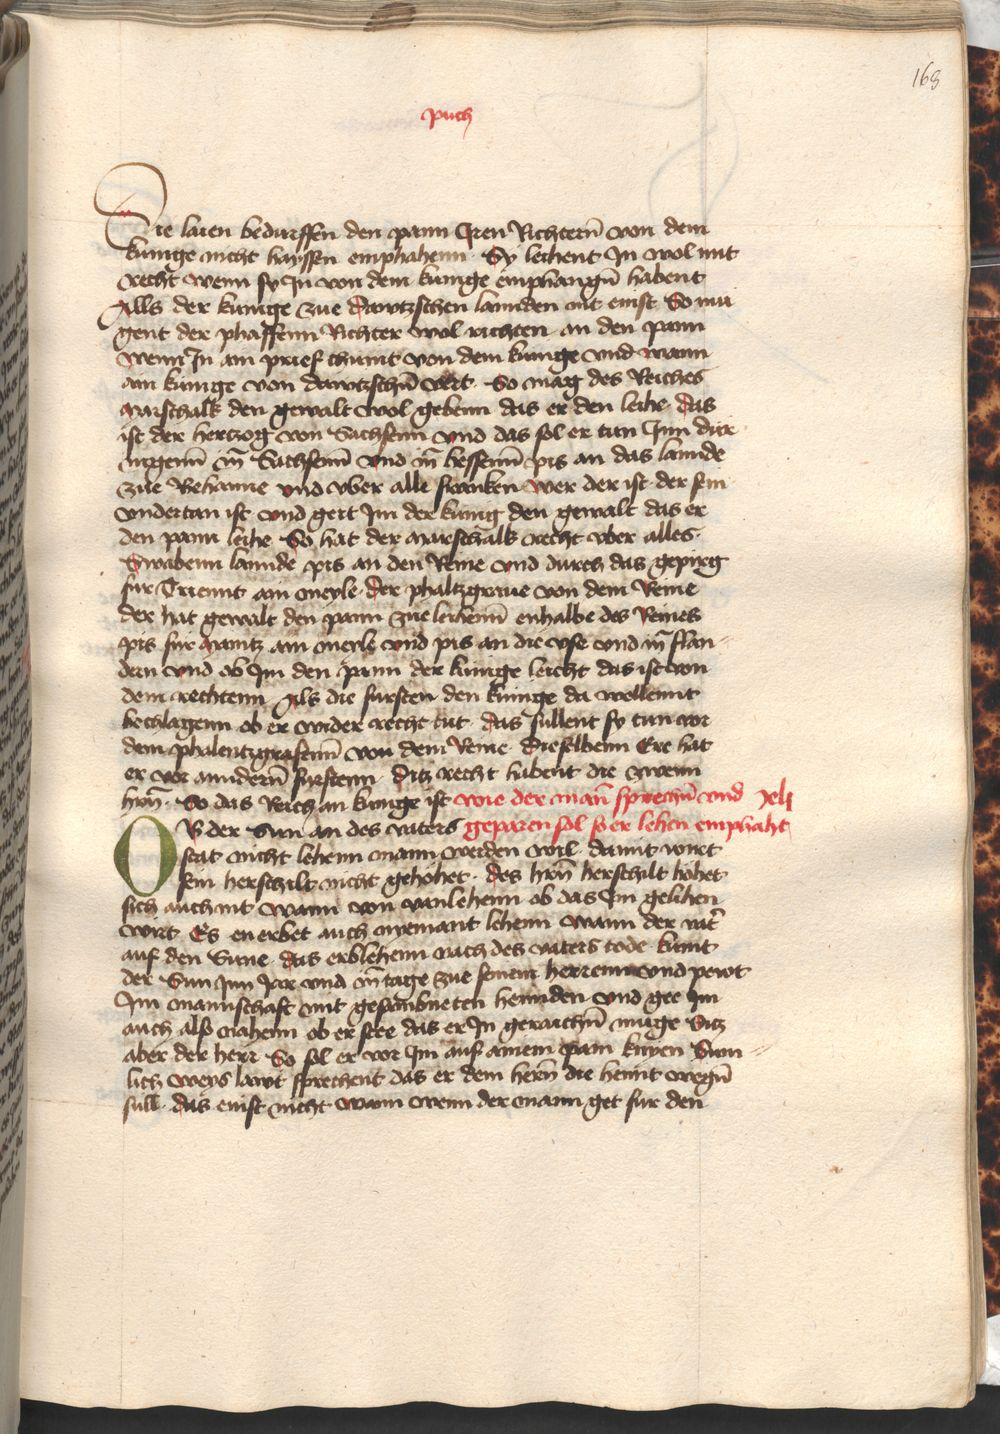 168
puch
Die laien bedurffen den pann Iren Richternn̄ von dem
kunige nicht haissen emphahenn. Sy leihent In wol mit
recht wenn sy In von dem kunige emphangn̄ habent
Alls der kunige zue dawtzschen lannden nit enist So mu
gent der phaffenn Richter wol richten an den pann
wenn In ain prief chumt von dem kunige vnd wann
ain kunige von dawtzschn̄ vert. So mag des Reiches
marschalk den gewalt wol gebenn das er den leihe. das
ist der hertzog von Sachsenn vnd das sol er tun Inn dür
ingenn̄ in̄ Sachsenn̄ vnd in̄ hessenn̄ pis an das lannde
zue Behaime vnd vber alle franken wer der ist der sein
vndertan ist vnd gert Im der kunig den gewalt das er
den pann leihe So hat der marschalk recht vber alles.
Swabenn lannde pis an den Reine vnd durch das gepirg
fur Trienntt ain meyle. der phaltzgraue von dem Reine
der hat gewalt den pann zue leihenn̄ enhalbe des Reines
pis fur maintz ain meile vnd pis an die vse vnd in̄ flan
dern vnd ob Im den pann der kunige leicht das ist von
dem rechtenn Als die fursten den kunige da wellennt
bechlagenn ob er wider recht tut. das sullent sy tun vor
dem phalentzgrafenn̄ von dem Reine dieselbenn Ere hat
er vor anndernn̄ furstenn. Ditz recht habent die zwenn
hrn̄. So das Reich an kunige ist wie der man̄ sprechn̄ vnd xli
OB der Sun an des vaters geparen sol so er lehen emphaht
stat nicht lehenn mann werden wil. damit wirt
sein herschilt nicht gehöhet. des hrn̄ herschilt höhet
sich auch nit wann von vanlehenn ob das Im gelihen
wirt Es enerbet auch nyemant lehenn wann der vat̄
auf den Sune. das erblehenn nach des vaters tode kumt
der Sun Inn Jar vnd in̄ tage zue seinem herrenn vnd pewt
Im mannschaft mit gesambneten hennden vnd gee Im
auch also nahenn ob er stee das er In geraichn̄ muge Sitz
aber der herr So sol er vor Im auf ainem pain knyen Sum
lich weys lawt sprechent das er dem hern̄ die hennt wegn̄
sull. das enist nicht wann wenn der mann get fur den